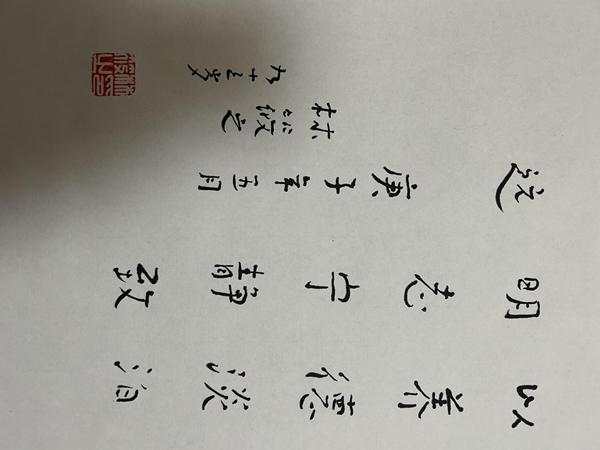 以养德淡泊
明志宁静致
远
庚子年五月
林筱之
九十三岁